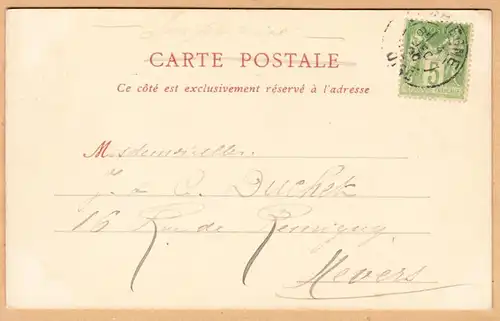 CARTE POSTALE
Ce côté est exclusivement réservé à l'adresse
Mesdemoiselles
J. & C. Duchek
16 Rue de Remigny
Nevers
5